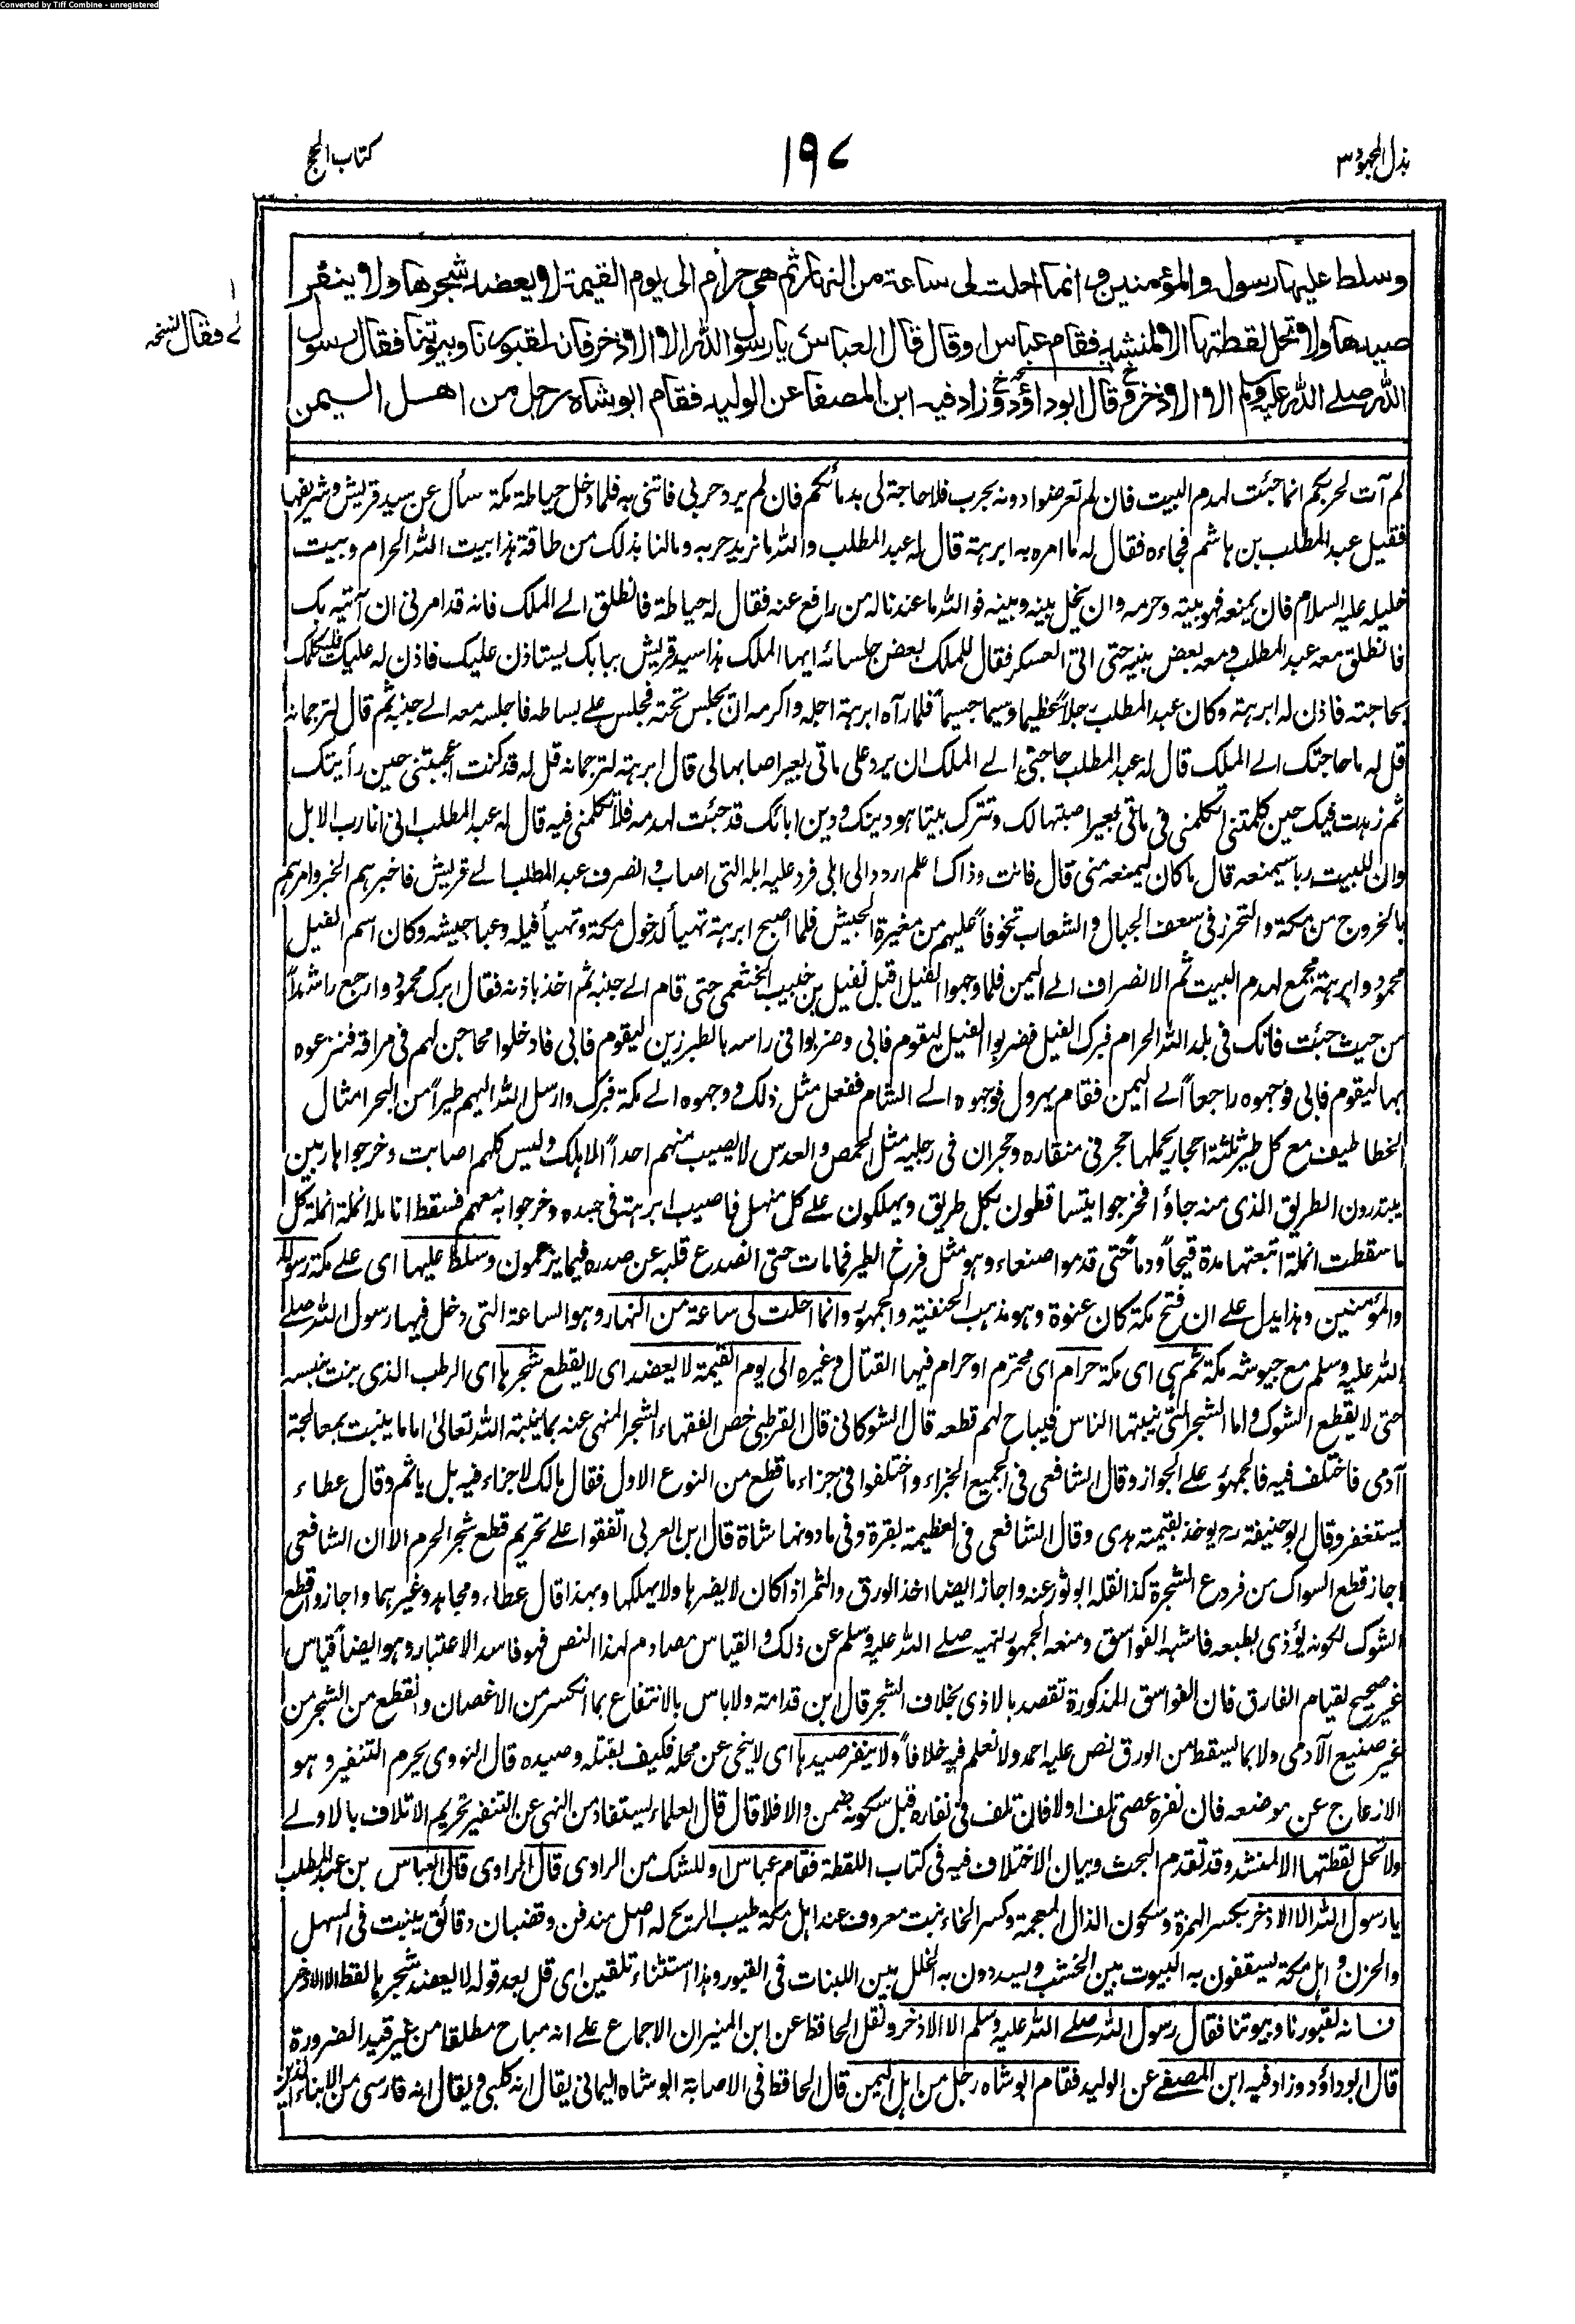 Converted by Tiff Combine - unregistered
بذل المجہود ٣
١٩٧
كتاب الحج
وسلط عليها رسوله والمؤمنين وانما احلت لى ساعة من النهار ثم هي حرام الى يوم القيمة لا يعضد شجرها ولا ينفر
صيدها ولا تحل لقطتها الا لمنشد فقام عباس او قال قال العباس يا رسول الله الا الاذخر فانه لقبورنا وبيوتنا فقال رسول
الله صلے الله عليه وسلم الا الاذخر قال ابوداؤد وزاد فيه ابن المصفا عن الوليد فقام ابوشاه رجل من اهل اليمن
لے فقال نسخہ
لم آت لحربكم انما جئت لهدم البيت فان لم تعرضوا دونه بحرب فلا حاجة لى بدمائكم فان لم يرد حربى فاتنى به فلما دخل حياطة مكة سأل عن سيد قريش وشريفها
فقيل عبد المطلب بن هاشم فجاءه فقال له ما امره به ابرهة قال له عبد المطلب والله ما نريد حربه ومالنا بذلك من طاقة هذا بيت الله الحرام وبيت
خليله عليه السلام فان يمنعه فهو بيته وحرمه وان يخل بينه وبينه فوالله ما عندنا له من رافع عنه فقال له حياطة فانطلق الے الملك فانه قد امرنى ان آتيه بك
فانطلق معه عبد المطلب ومعه بعض بنيه حتى اتى العسكر فقال للملك بعض جلسائه ايها الملك هذا سيد قريش ببابك يستاذن عليك فاذن له عليك فليكلمك
بحاجته فاذن له ابرهة وكان عبد المطلب رجلاً عظيما وسيما جسيماً فلما رآه ابرهة اجله واكرمه ان يجلس تحته فجلس علے بساطه فاجلسه معه الے جنبه ثم قال لترجمانه
قل له ما حاجتك الے الملك قال له عبد المطلب حاجتى الے الملك ان يرد على مائتى بعير اصابها لى قال ابرهة لترجمانه قل له قد كنت اعجبتنى حين رأيتك
ثم زهدت فيك حين كلمتنى اتكلمنى فى مائتى بعير اصبتها لك وتترك بيتا هو دينك ودين ابائك قد جئت لهدمه فلا تكلمنى فيه قال له عبد المطلب انى انا رب الابل
وان للبيت ربا سيمنعه قال ما كان ليمنعه منى قال فانت وذاك اعلم اردد الى ابلى فرد عليه ابله التى اصاب وانصرف عبد المطلب الے قريش فاخبرهم الخبر وامرهم
بالخروج من مكة والتحرز فى سعف الجبال والشعاب تخوفاً عليهم من مغيرة الجيش فلما اصبح ابرهة تهيأ لدخول مكة وتهيأ فيله وعبا جيشه وكان اسم الفيل
محمود وابرهة مجمع لهدم البيت ثم الانصراف الے اليمن فلما وجهوا الفيل اقبل نفيل بن خبيب الخثعمى حتى قام الے جنبه ثم اخذ باذنه فقال ابرك محمود وارجع راشداً
من حيث جئت فانك فى بلد الله الحرام فبرك الفيل فضربوا الفيل ليقوم فابى وضربوا فى راسه بالطبرزين ليقوم فابى فادخلوا محاجن لهم فى مراقه فنزعوه
بها ليقوم فابى فوجهوه راجعاً الے اليمن فقام يهرول فوجهوه الے الشام ففعل مثل ذلك ووجهوه الے مكة فبرك وارسل الله اليهم طيراً من البحر امثال
الخطاطيف مع كل طير ثلثة احجار يحملها حجر فى منقاره وحجران فى رجليه مثل الحمص والعدس لا يصيب منهم احداً الا هلك وليس كلهم اصابت وخرجوا هاربين
يبتدرون الطريق الذى منه جاؤا فخرجوا يتساقطون بكل طريق ويهلكون علے كل منهل فاصيب ابرهة فى جسده وخرجوا به معهم فسقط انامله انملة انملة كل
ما سقطت انملة اتبعتها مدة قيحاً ودماً حتى قدموا صنعاء وهو مثل فرخ الطير فما مات حتى انصدع قلبه عن صدره فيما يزعمون وسلط عليها اى علے مكة رسوله
والمؤمنين وهذا يدل علے ان فتح مكة كان عنوة وهو مذهب الحنفية والجمهور وانما احلت لى ساعة من النهار وهو الساعة التى دخل فيها رسول الله صلے
الله عليه وسلم مع جيوشه مكة ثم هى اى مكة حرام اى محترم او حرام فيها القتال وغيره الى يوم القيمة لا يعضد اى لا يقطع شجرها اى الرطب الذى ينبت بنفسه
حتى لا يقطع الشوك واما الشجر التى ينبتها الناس فيباح لهم قطعه قال الشوكانى قال القرطبى خص الفقهاء الشجر المنهى عنه بما ينبته الله تعالىٰ اما ما ينبت بمعالجة
آدمى فاختلف فيه فالجمهور علے الجواز وقال الشافعى فى الجميع الجزاء واختلفوا فى جزاء ما قطع من النوع الاول فقال مالك لا جزاء فيه بل ياثم وقال عطاء
يستغفر وقال ابوحنيفة رح يوخذ بقيمته هدى وقال الشافعى فى العظيمة بقرة وفى ما دونها شاة قال ابن العربى اتفقوا علے تحريم قطع شجر الحرم الا ان الشافعى
اجاز قطع السواك من فروع الشجرة كذا نقله ابوثور عنه واجاز ايضا اخذ الورق والثمر اذا كان لا يضرها ولا يهلكها وبهذا قال عطاء ومجاهد وغيرهما واجازوا قطع
الشوك لكونه يؤذى بطبعه فاشبه الفواسق ومنعه الجمهور لنهيه صلے الله عليه وسلم عن ذلك والقياس مصادم لهذا النص فهو فاسد الاعتبار وهو ايضاً قياس
غير صحيح لقيام الفارق فان الفواسق المذكورة تقصد بالاذى بخلاف الشجر قال ابن قدامة ولا باس بالانتفاع بما انكسر من الاغصان وانقطع من الشجر من
غير صنيع الآدمى ولا بما يسقط من الورق نص عليه احمد ولا نعلم فيه خلافاً ولا ينفر صيدها اى لا ينحى عن محله فكيف بقتله وصيده قال النووى يحرم التنفير وهو
الازعاج عن موضعه فان نفره عصى تلف اولا فان تلف فى نفاره قبل سكونه ضمن والا فلا قال قال العلماء يستفاد من النهى عن التنفير تحريم الاتلاف بالاولے
ولا تحل لقطتها الا لمنشد وقد تقدم البحث وبيان الاختلاف فيه فى كتاب اللقطة فقام عباس او للشك من الراوى قال الراوى قال العباس بن عبد المطلب
يا رسول الله الا الاذخر بكسر الهمزة وسكون الذال المعجمة وكسر الخاء نبت معروف عند اهل مكة طيب الريح له اصل مندفن وقضبان دقائق ينبت فى السهل
والحزن واهل مكة يسقفون به البيوت بين الخشب ويسددون به الخلل بين اللبنات فى القبور وهذا استثناء تلقين اى قل بعد قوله لا يعضد شجرها لفظ الا الاذخر
فانه لقبورنا وبيوتنا فقال رسول الله صلے الله عليه وسلم الا الاذخر ونقل الحافظ عن ابن المنير ان الاجماع علے انه مباح مطلقا من غير قيد الضرورة
قال ابوداؤد وزاد فيه ابن المصفے عن الوليد فقام ابوشاه رجل من اهل اليمن قال الحافظ فى الاصابة ابوشاه اليمانى يقال انه كلبى ويقال انه فارسى من الابناء الذين